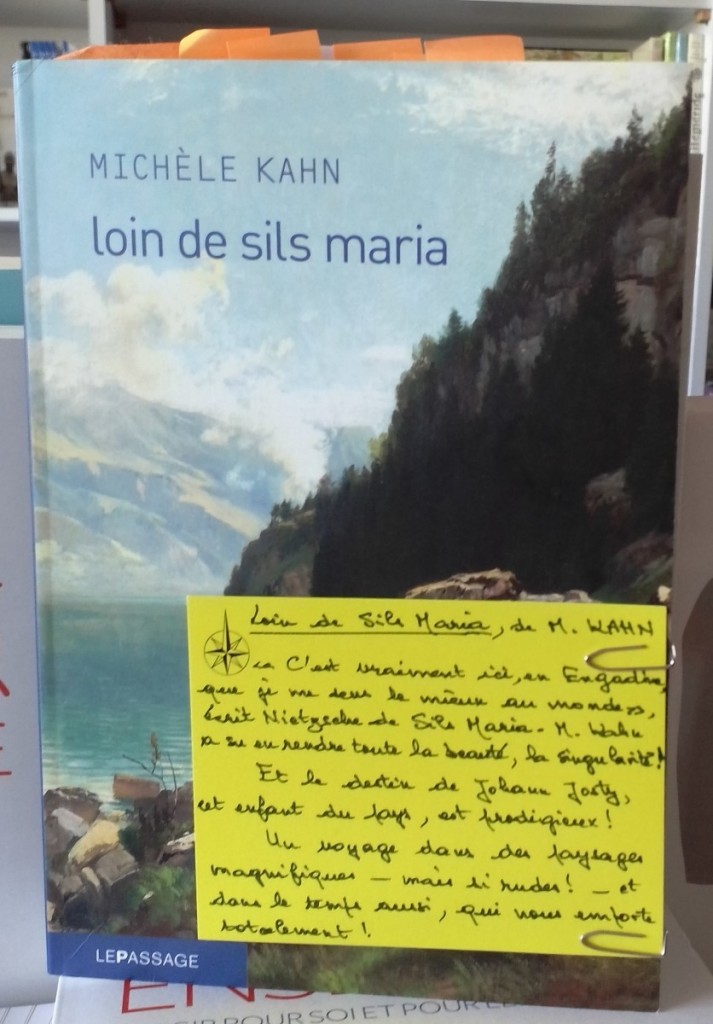 MICHÈLE KAHN
loin de sils maria
Loin de Sils Maria, de M. KAHN
« C'est vraiment ici, en Engadine,
que je me sens le mieux au monde »,
écrit Nietzsche de Sils Maria. M. Kahn
a su en rendre toute la beauté, la singularité !
Et le destin de Johann Josty,
cet enfant du pays, est prodigieux !
Un voyage dans des paysages
magnifiques — mais si rudes ! — et
dans le temps aussi, qui vous emporte
totalement !
LEPASSAGE
POUR SOI ET POUR